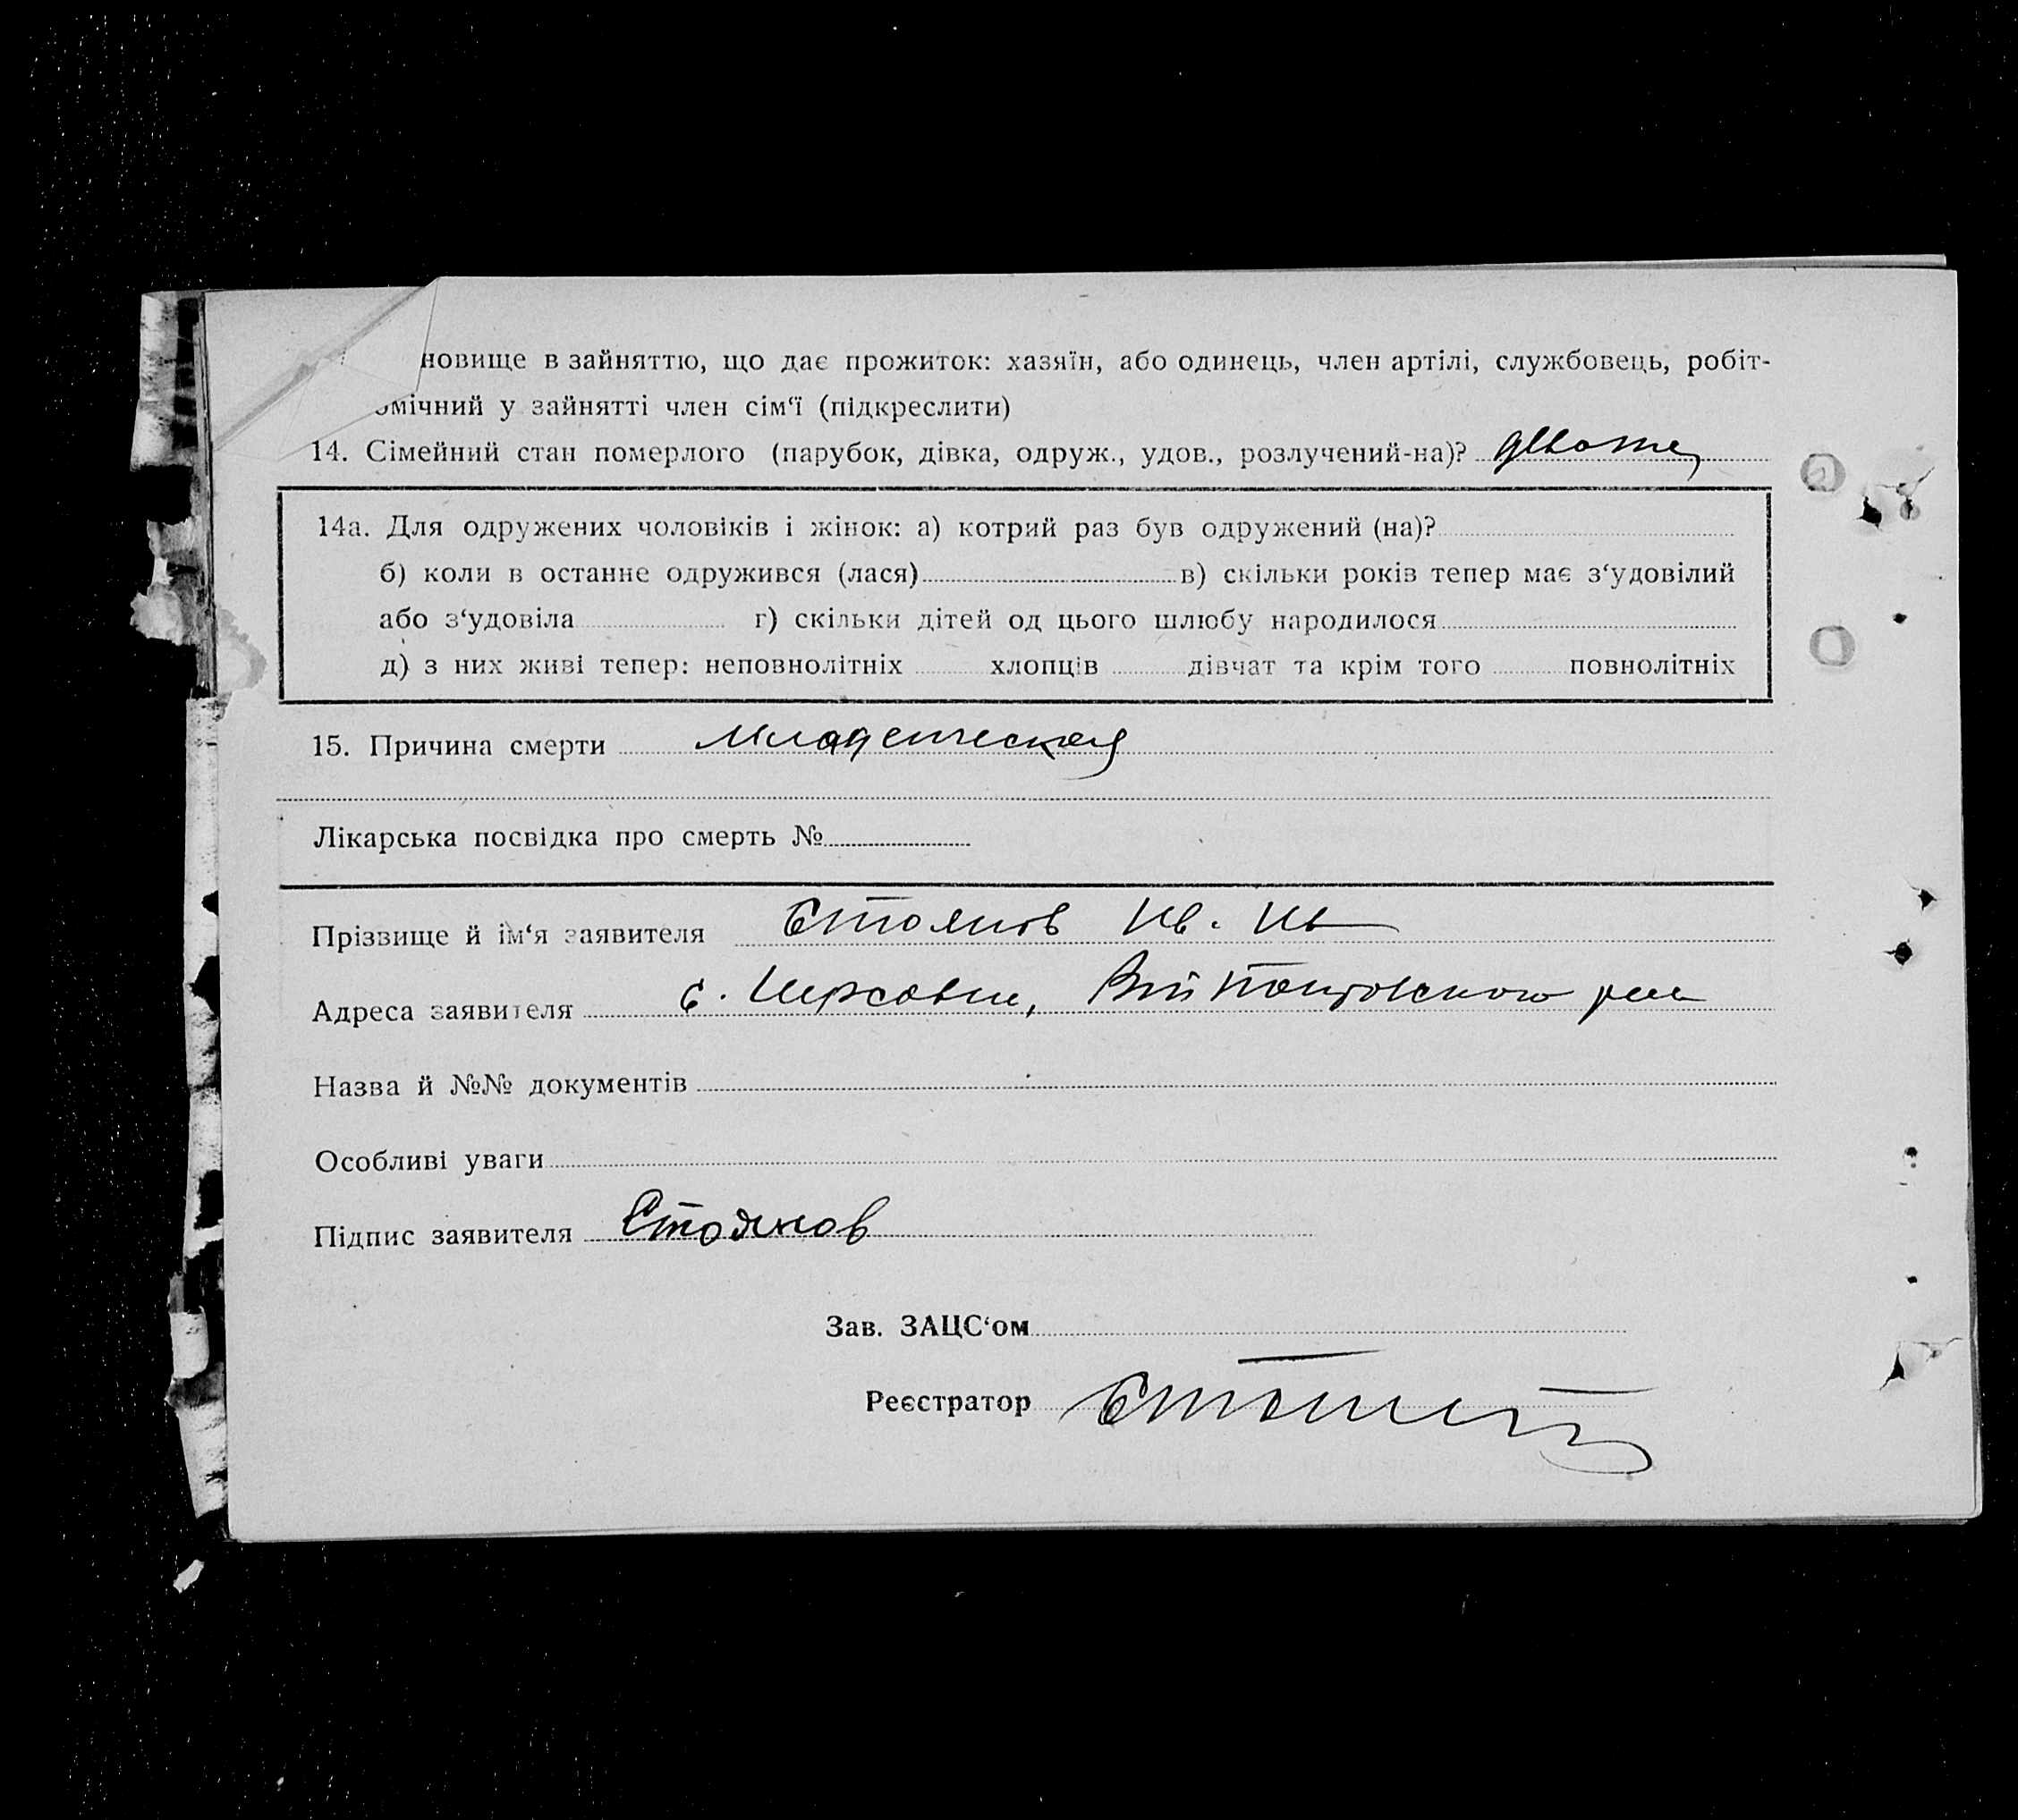 новище в зайняттю, що дає прожиток: хазяїн, або одинець, член артілі, службовець, робіт-
омічний у зайнятті член сім‘ї (підкреслити)
14. Сімейний стан померлого (парубок, дівка, одруж., удов., розлучений-на)?
14а. Для одружених чоловіків і жінок: а) котрий раз був одружений (на)?
б) коли в останнє одружився (лася) в) скільки років тепер має з‘удовілий
або з‘удовіла г) скільки дітей од цього шлюбу народилося
д) з них живі тепер: неповнолітніх хлопців дівчат та крім того повнолітніх
15. Причина смерти младенческая
Лікарська посвідка про смерть №
Прізвище й ім‘я заявителя Стоянов Ив. Ив
Адреса заявителя с.
Назва й №№ документів
Особливі уваги
Підпис заявителя Стоянов
Зав. ЗАЦС‘ом
Реєстратор